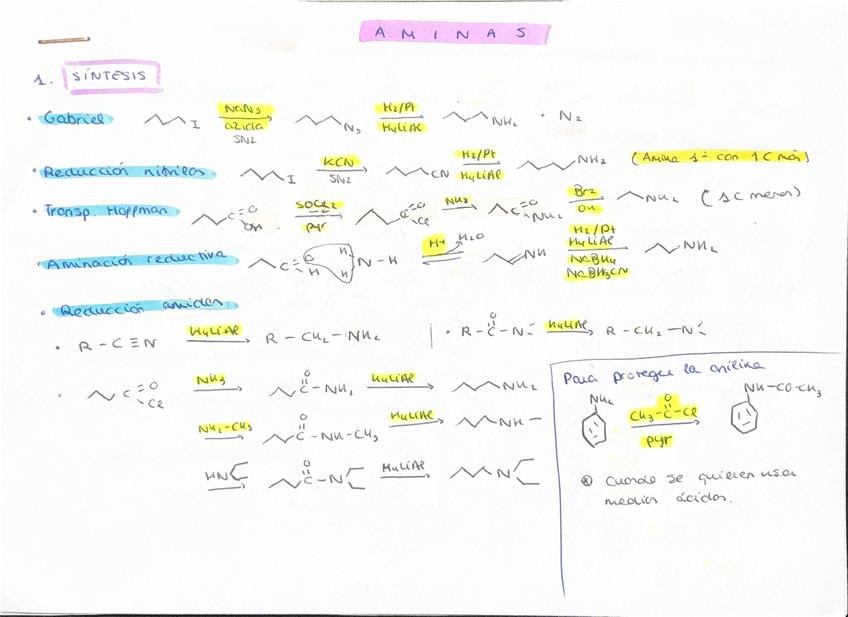 AMINAS
1. SÍNTESIS
• Gabriel I NaN3 azida SN2 N3 H2/Pt H4LiAl NH2 + N2
• Reducción nitrilos I KCN SN2 CN H2/Pt H4LiAl NH2 (Amina 1ª con 1C más)
• Transp. Hoffman C O OH SOCl2 pyr C O Cl NH3 C O NH2 Br2 OH NH2 (1C menos)
• Aminación reductiva C O H H H N-H H+ H2O NH H2/Pt H4LiAl NaBH4 NaBH3CN NH2
• Reducción amidas
• R-C≡N H4LiAl R-CH2-NH2 • R-C-N O H4LiAl R-CH2-N
• C O Cl NH3 O C-NH2 H4LiAl NH2
NH2-CH3 O C-NH-CH3 H4LiAl NH
HN O C-N H4LiAl N
Para proteger la anilina
NH2 CH3-C-Cl O pyr NH-CO-CH3
* Cuando se quieren usar
medios ácidos.